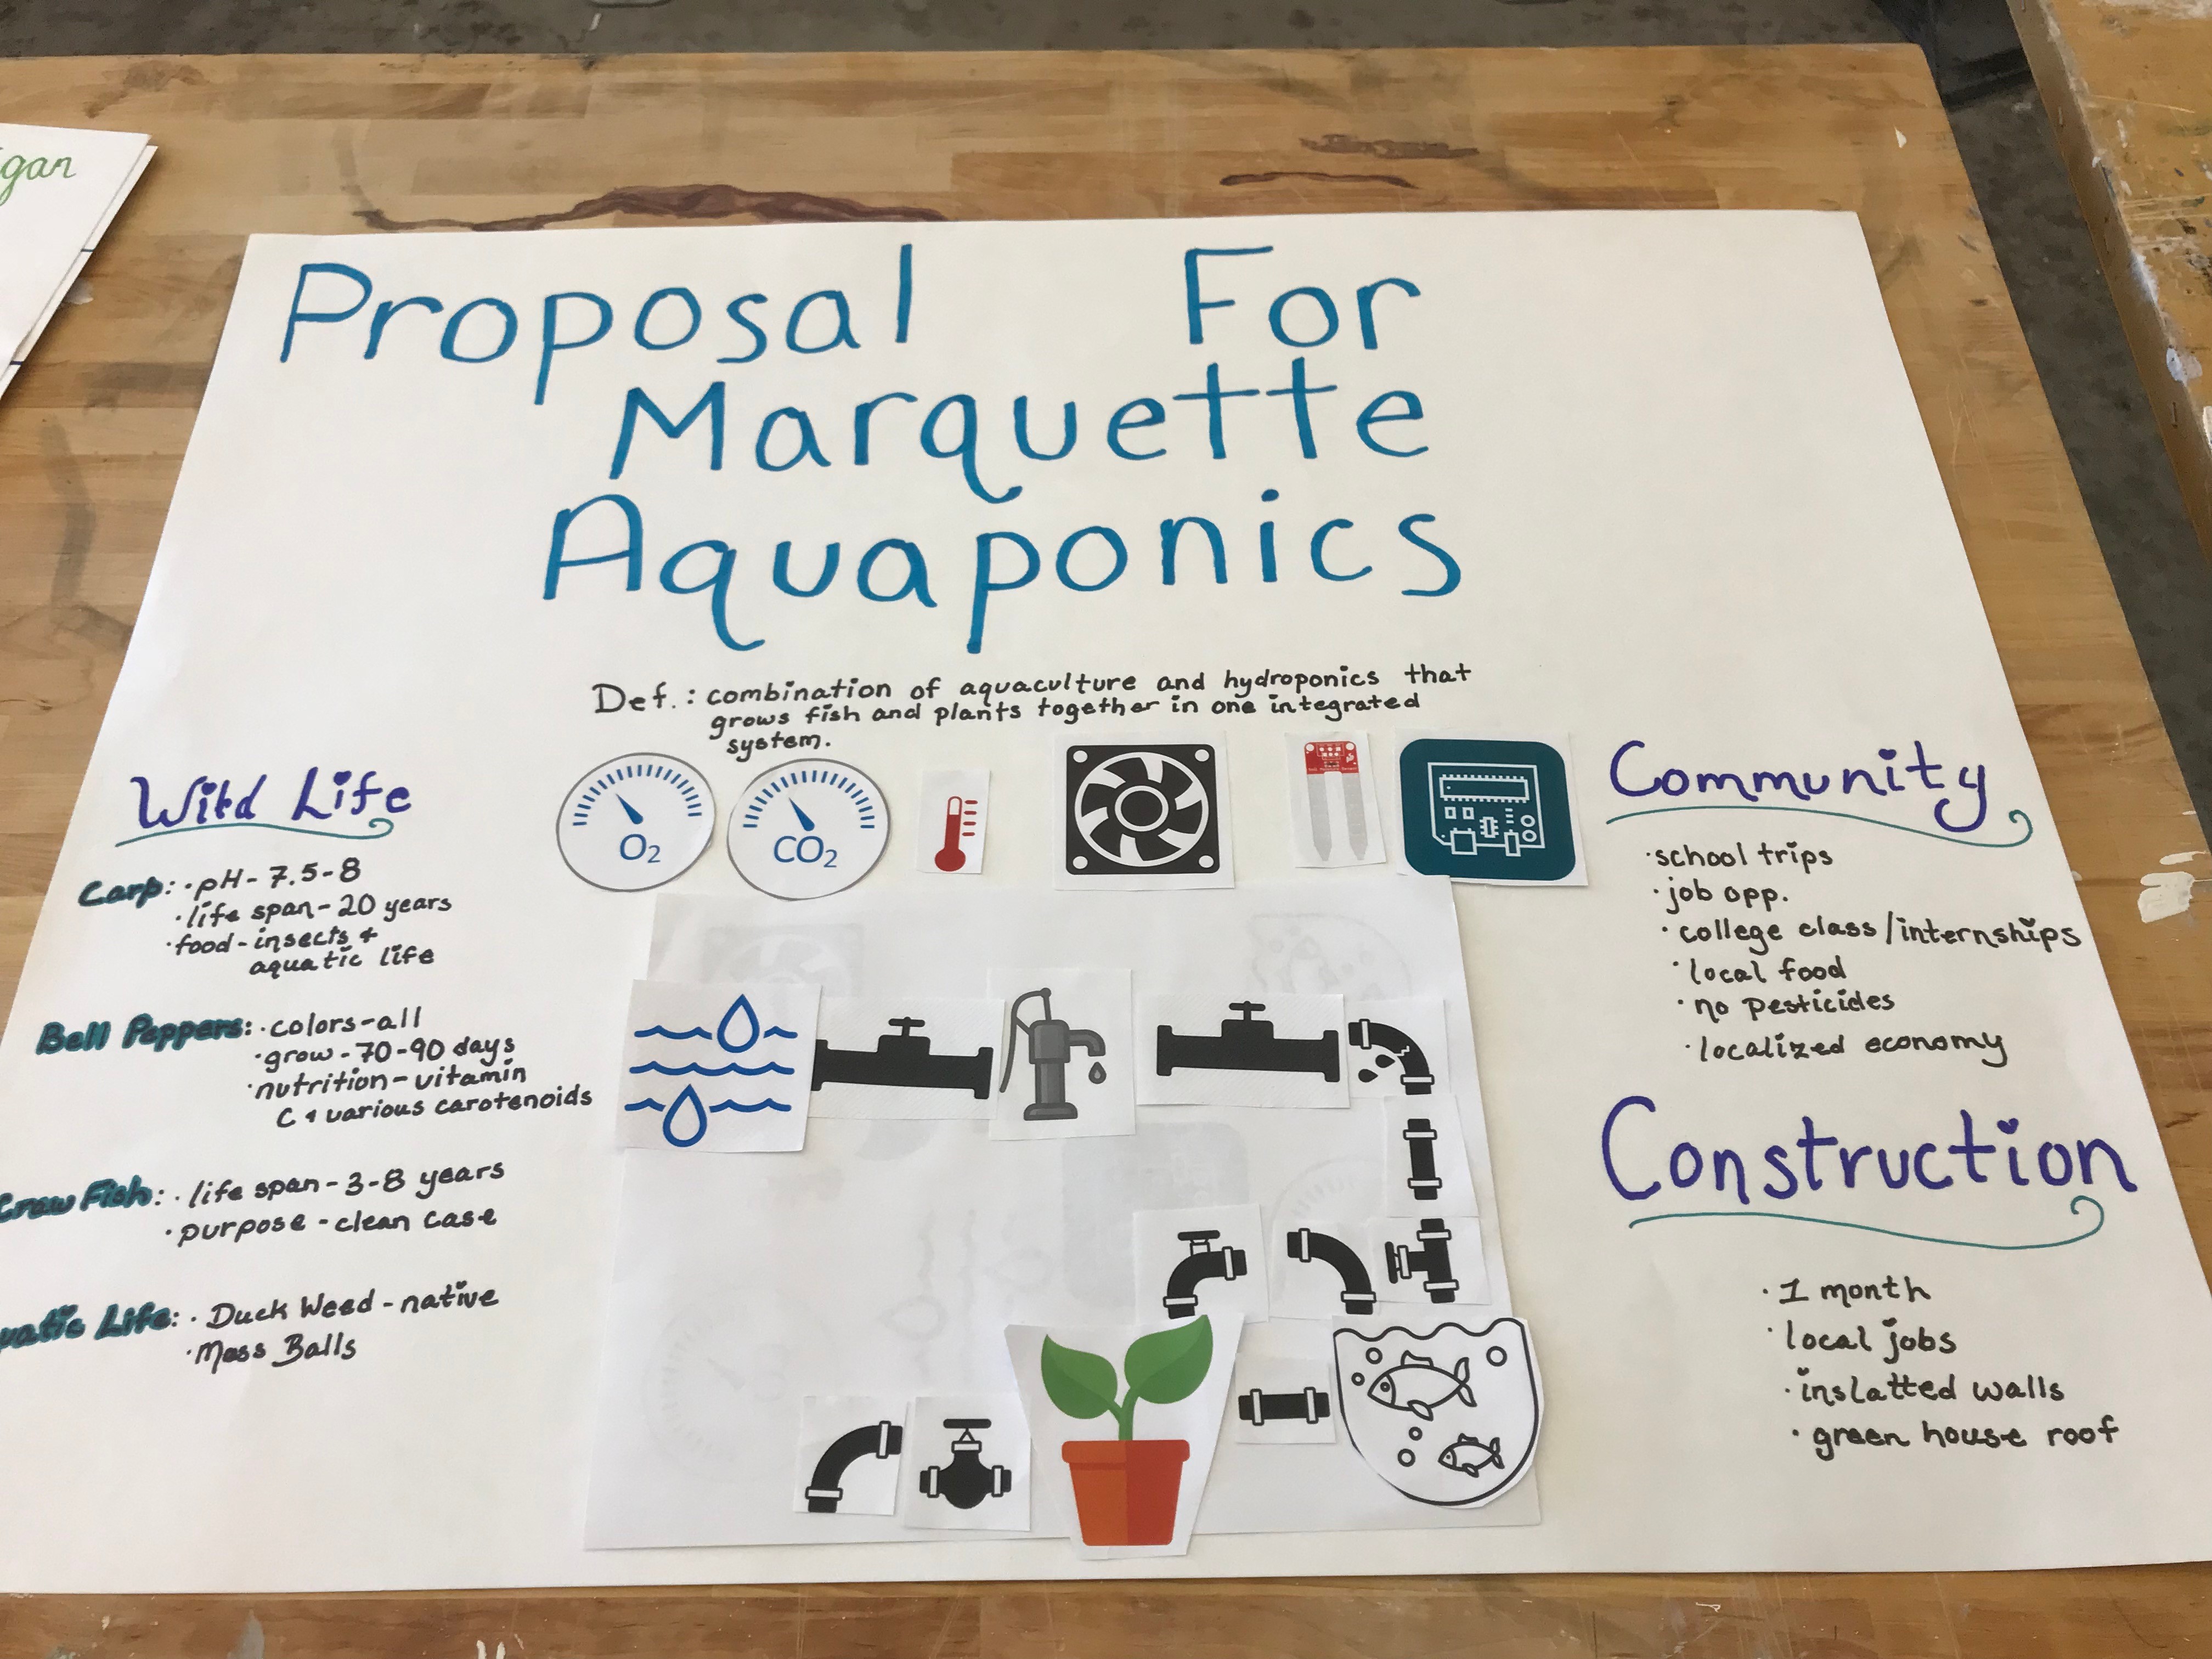 gan
Proposal For
Marquette
Aquaponics
Def.: combination of aquaculture and hydroponics that
grows fish and plants together in one integrated
system.
O2
CO2
Wild Life
Carp: · pH - 7.5-8
· life span - 20 years
· food - insects &
aquatic life
Bell Peppers: · colors - all
· grow - 70-90 days
· nutrition - vitamin
C & various carotenoids
Craw Fish: · life span - 3-8 years
· purpose - clean case
uatic Life: · Duck Weed - native
· Moss Balls
Community
· school trips
· job opp.
· college class/internships
· local food
· no pesticides
· localized economy
Construction
· 1 month
· local jobs
· inslatted walls
· green house roof